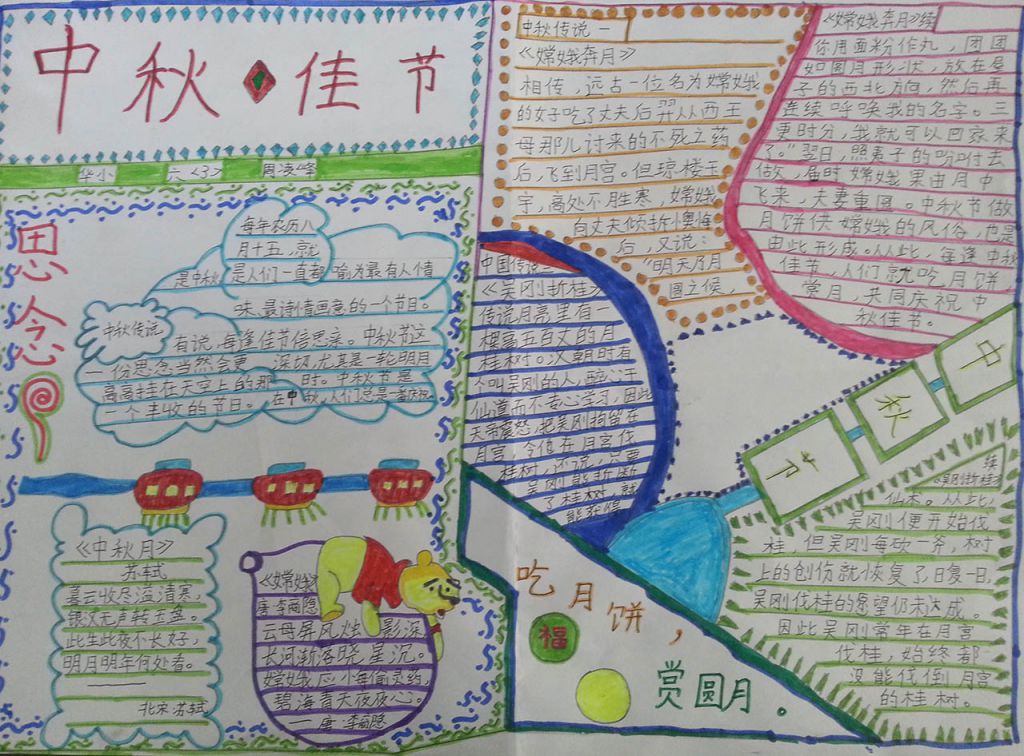 中秋佳节
华小 六<3> 周凌峰
思念
每年农历八
月十五,就
是中秋 是人们一直都 喻为最有人情
味、最诗情画意的一个节日。
中秋传说
有说,每逢佳节倍思亲。中秋节这
一份思念当然会更 深切,尤其是一轮明月
高高挂在天空上的那 时。中秋节是
一个丰收的节日。在中秋,人们总是
《中秋月》
苏轼
暮云收尽溢清寒,
银汉无声转玉盘。
此生此夜不长好,
明月明年何处看。
北宋·苏轼
《嫦娥》
唐·李商隐
云母屏风烛影深
长河渐落晓星沉。
嫦娥应 偷灵药,
碧海青天夜夜心。
——唐·李商隐
中秋传说一
《嫦娥奔月》
相传,远古一位名为嫦娥
的女子吃了丈夫后羿从西王
母那儿讨来的不死之药
后,飞到月宫。但琼楼玉
宇,高处不胜寒,嫦娥
向丈夫倾诉懊悔
后,又说:
“明天乃月
圆之候,
《嫦娥奔月》续
你用面粉作丸,团团
如圆月形状,放在屋
子的西北方向,然后再
连续呼唤我的名字。三
更时分,我就可以回家来
了。”翌日,照妻子的吩咐去
做,届时嫦娥果由月中
飞来,夫妻重圆。中秋节做
月饼供嫦娥的风俗,也是
由此形成。从此,每逢中秋
佳节,人们就吃月饼,
赏月,共同庆祝中
秋佳节。
中国传说二
《吴刚折桂》
传说月亮里有一
棵高五百丈的月
桂树。汉朝时有
个叫吴刚的人,醉心于
仙道而不专心学习,因此
天帝震怒,把吴刚拘留在
月宫,令他在月宫伐
桂树,还说,只要
吴刚能折断
了桂树,就
能获得
中
秋
节
续
《吴刚折桂》
仙术。从此,
吴刚便开始伐
桂,但吴刚每砍一斧,树
上的创伤就恢复了,日复一日,
吴刚伐桂的愿望仍未达成。
因此吴刚常年在月宫
伐桂,始终都
没能伐倒月宫
的桂树。
吃月饼,
福
赏圆月。